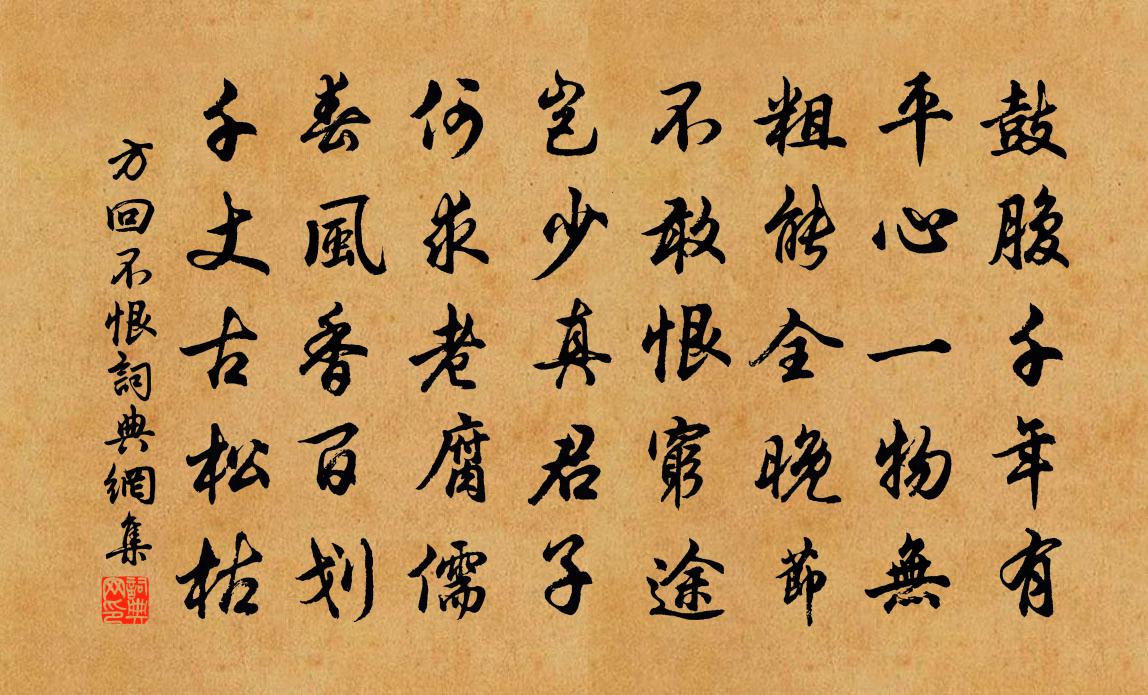 鼓腹千年有
平心一物無
粗能全晚節
不敢恨窮途
豈少真君子
何求老腐儒
春風香百刬
千丈古松枯
方回不恨詞典網集
詞典网印